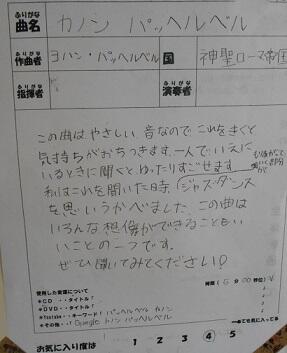 ふりがな
曲名 カノン パッヘルベル
ふりがな
作曲者 ヨハン・パッヘルベル 国 神聖ローマ帝国
ふりがな ふりがな
指揮者 演奏者
この曲はやさしい音なので、これをきくと
気持ちがおちつきます。一人でいえに
いるときに聞くと、ゆったりすごせます
私はこれを聞いた時、ジャズダンス
を思いうかべました。この曲は
いろんな想像ができることもい
いことの一つです。
ぜひ聞いてみてください!
使用した音源について
時間( 6 分 00 秒位)
*CD・・タイトル「
*DVD・・タイトル「
*Youtube・・キーワード「パッヘルベル カノン
*その他・・「Google カノン パッヘルベル
お気に入り度は 1 2 3 ④ 5